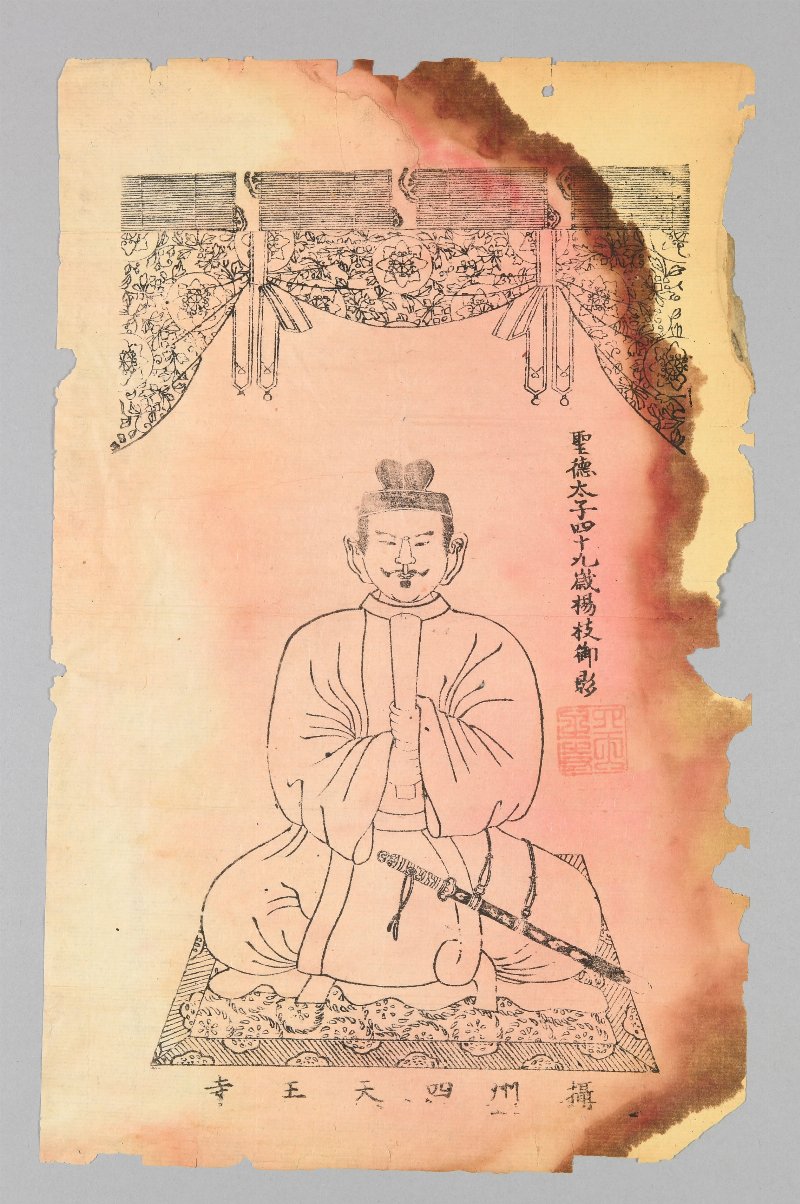 聖徳太子四十九歳楊枝御影
攝州四天王寺